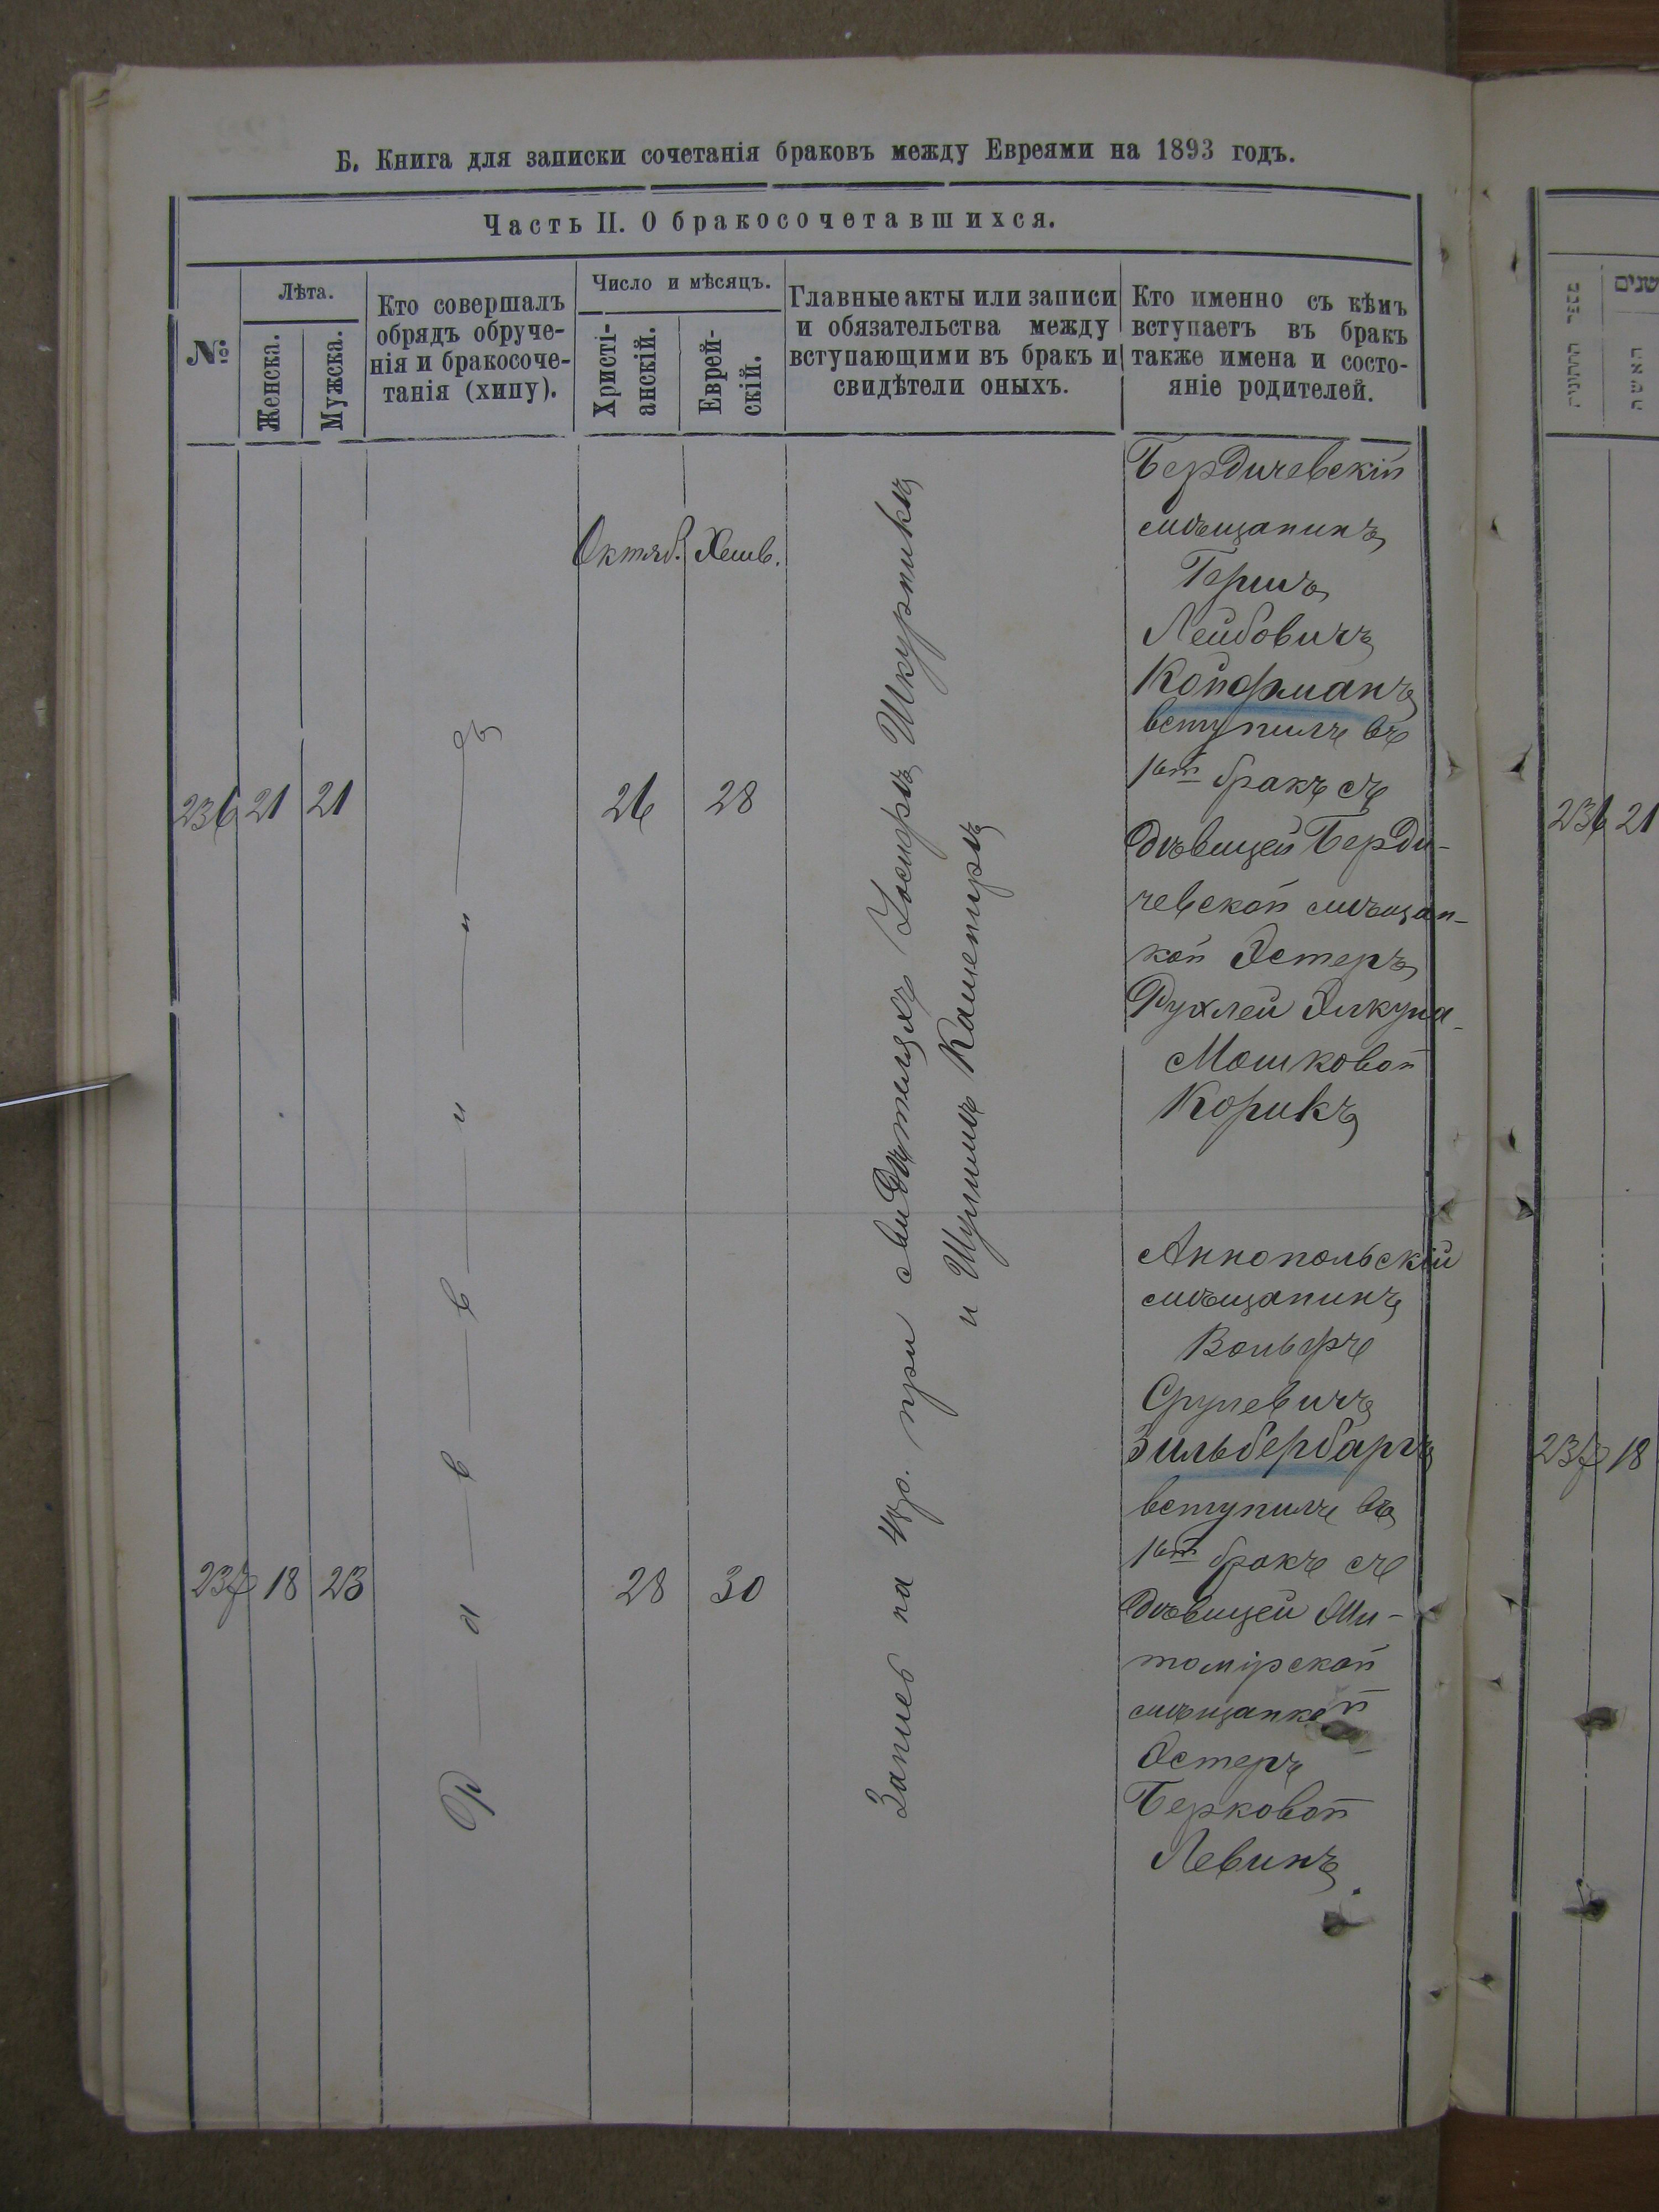 Б. Книга для записки сочетанія браковъ между Евреями на 1893 годъ.
Часть II. О бракосочетавшихся.
№
Лѣта.
Женска.
Мужска.
Кто совершалъ
обрядъ обруче-
нія и бракосоче-
танія (хипу).
Число и мѣсяцъ.
Христі-
анскій.
Еврей-
скій.
Главные акты или записи
и обязательства между
вступающими въ бракъ и
свидѣтели оныхъ.
Кто именно съ кѣмъ
вступаетъ въ бракъ
также имена и состо-
яніе родителей.
Октяб. Хешв.
236 21 21
26 28
Р а в в и н ъ
Запись на 48 р. при свидѣтеляхъ Іосифѣ Шкурникѣ
и Шулимѣ Каменицѣ
Бердичевскій
мѣщанинъ
Гершъ
Лейбовичъ
Койфманъ
вступилъ въ
1ый бракъ съ
дѣвицей Берди-
чевской мѣщан-
кой Эстеръ
Рухлей Элкуна-
Мошковой
Корикъ
237 18 23
28 30
Аннопольскій
мѣщанинъ
Вольфъ
Срулевичъ
Зильбербаргъ
вступилъ въ
1ый бракъ съ
дѣвицей Жи-
томірской
мѣщанкой
Эстеръ
Берковой
Левинъ
שנים
האשה
236 21
237 18